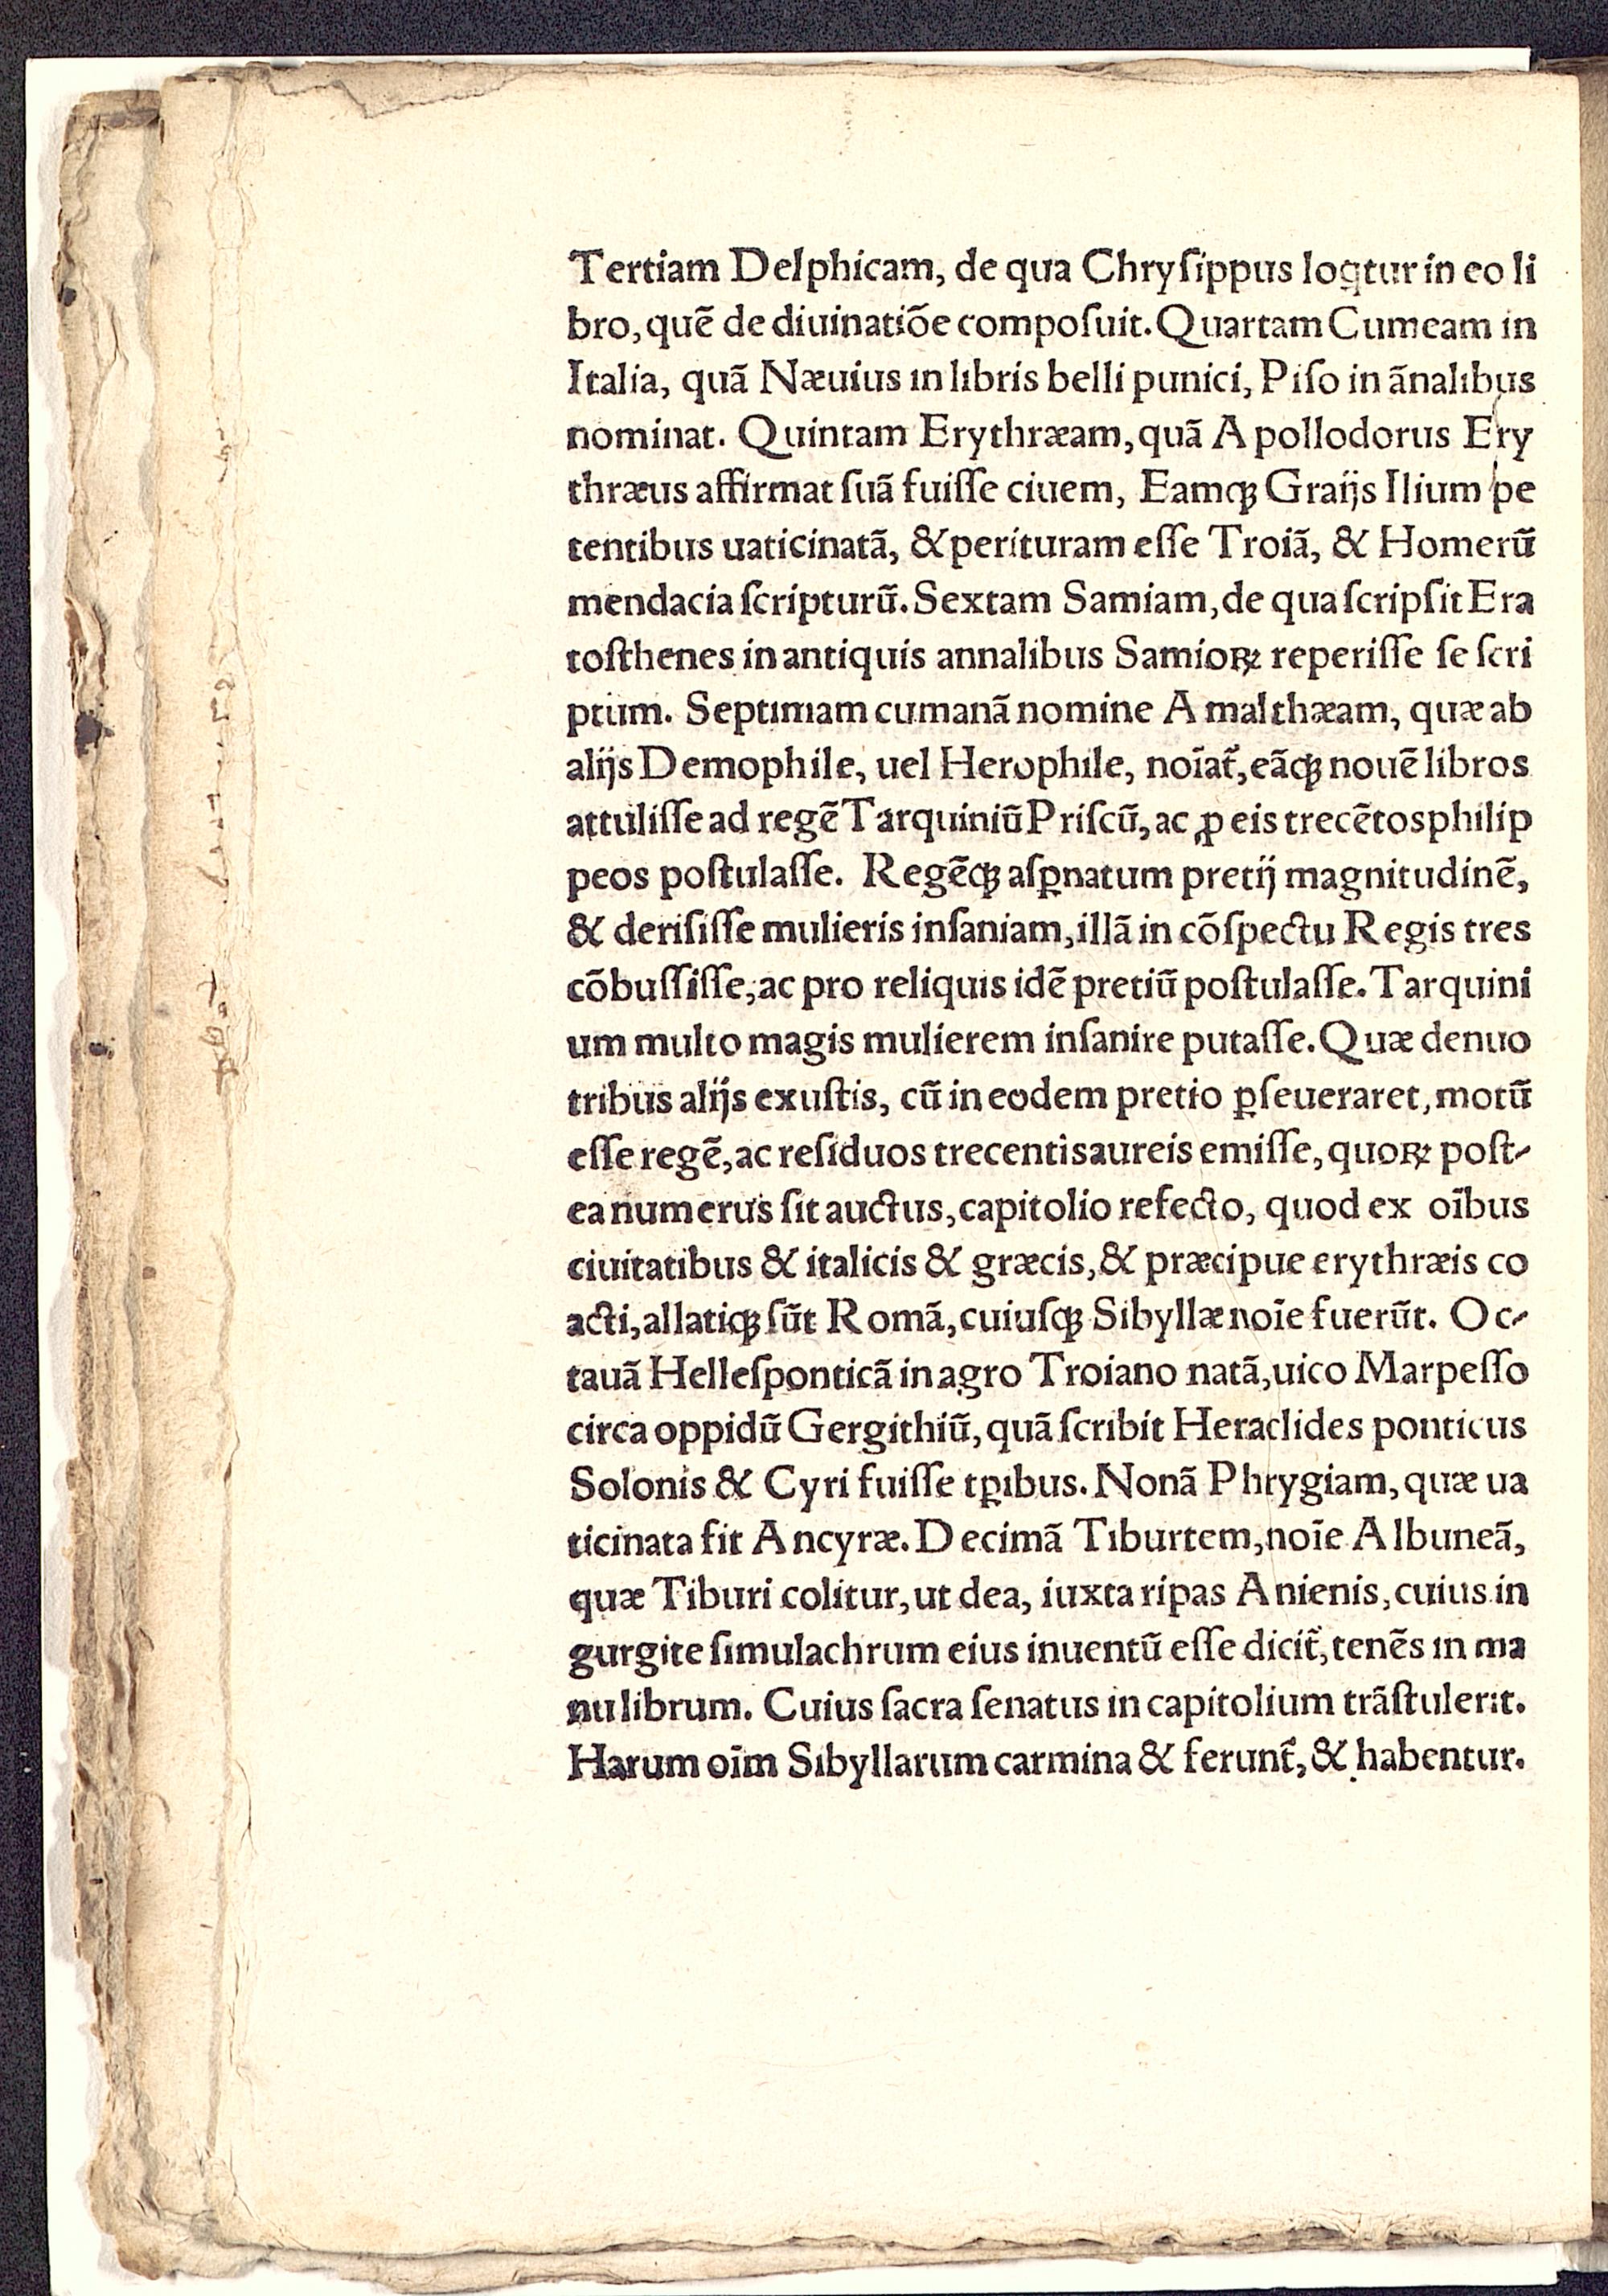 Tertiam Delphicam, de qua Chryſippus loqtur in eo li
bro, quē de diuinatiōe compoſuit. Quartam Cumeam in
Italia, quā Næuius in libris belli punici, Piſo in ānalibus
nominat. Quintam Erythræam, quā Apollodorus Ery
thræus affirmat ſuā fuiſſe ciuem, Eamqꝫ Graijs Ilium pe
tentibus uaticinatā, & perituram eſſe Troiā, & Homerū
mendacia ſcripturū. Sextam Samiam, de qua ſcripſit Era
toſthenes in antiquis annalibus Samioꝝ reperiſſe ſe ſcri
ptum. Septimam cumanā nomine Amalthæam, quæ ab
alijs Demophile, uel Herophile, noīat̃, eāqꝫ nouē libros
attuliſſe ad regē Tarquiniū Priſcū, ac ꝓ eis trecētos philip
peos poſtulaſſe. Regēqꝫ aſꝑnatum pretij magnitudinē,
& deriſiſſe mulieris inſaniam, illā in cōſpectu Regis tres
cōbuſſiſſe, ac pro reliquis idē pretiū poſtulaſſe. Tarquini
um multo magis mulierem inſanire putaſſe. Quæ denuo
tribus alijs exuſtis, cū in eodem pretio ꝑſeueraret, motū
eſſe regē, ac reſiduos trecentis aureis emiſſe, quoꝝ poſt-
ea numerus ſit auctus, capitolio refecto, quod ex oībus
ciuitatibus & italicis & græcis, & præcipue erythræis co
acti, allatiqꝫ ſūt Romā, cuiuſqꝫ Sibyllæ noīe fuerūt. Oc-
tauā Helleſponticā in agro Troiano natā, uico Marpeſſo
circa oppidū Gergithiū, quā ſcribit Heraclides ponticus
Solonis & Cyri fuiſſe tꝑibus. Nonā Phrygiam, quæ ua
ticinata ſit Ancyræ. Decimā Tiburtem, noīe Albuneā,
quæ Tiburi colitur, ut dea, iuxta ripas Anienis, cuius in
gurgite ſimulachrum eius inuentū eſſe dicit̃, tenēs in ma
nu librum. Cuius ſacra ſenatus in capitolium trāſtulerit.
Harum oīm Sibyllarum carmina & ferunt̃, & habentur.